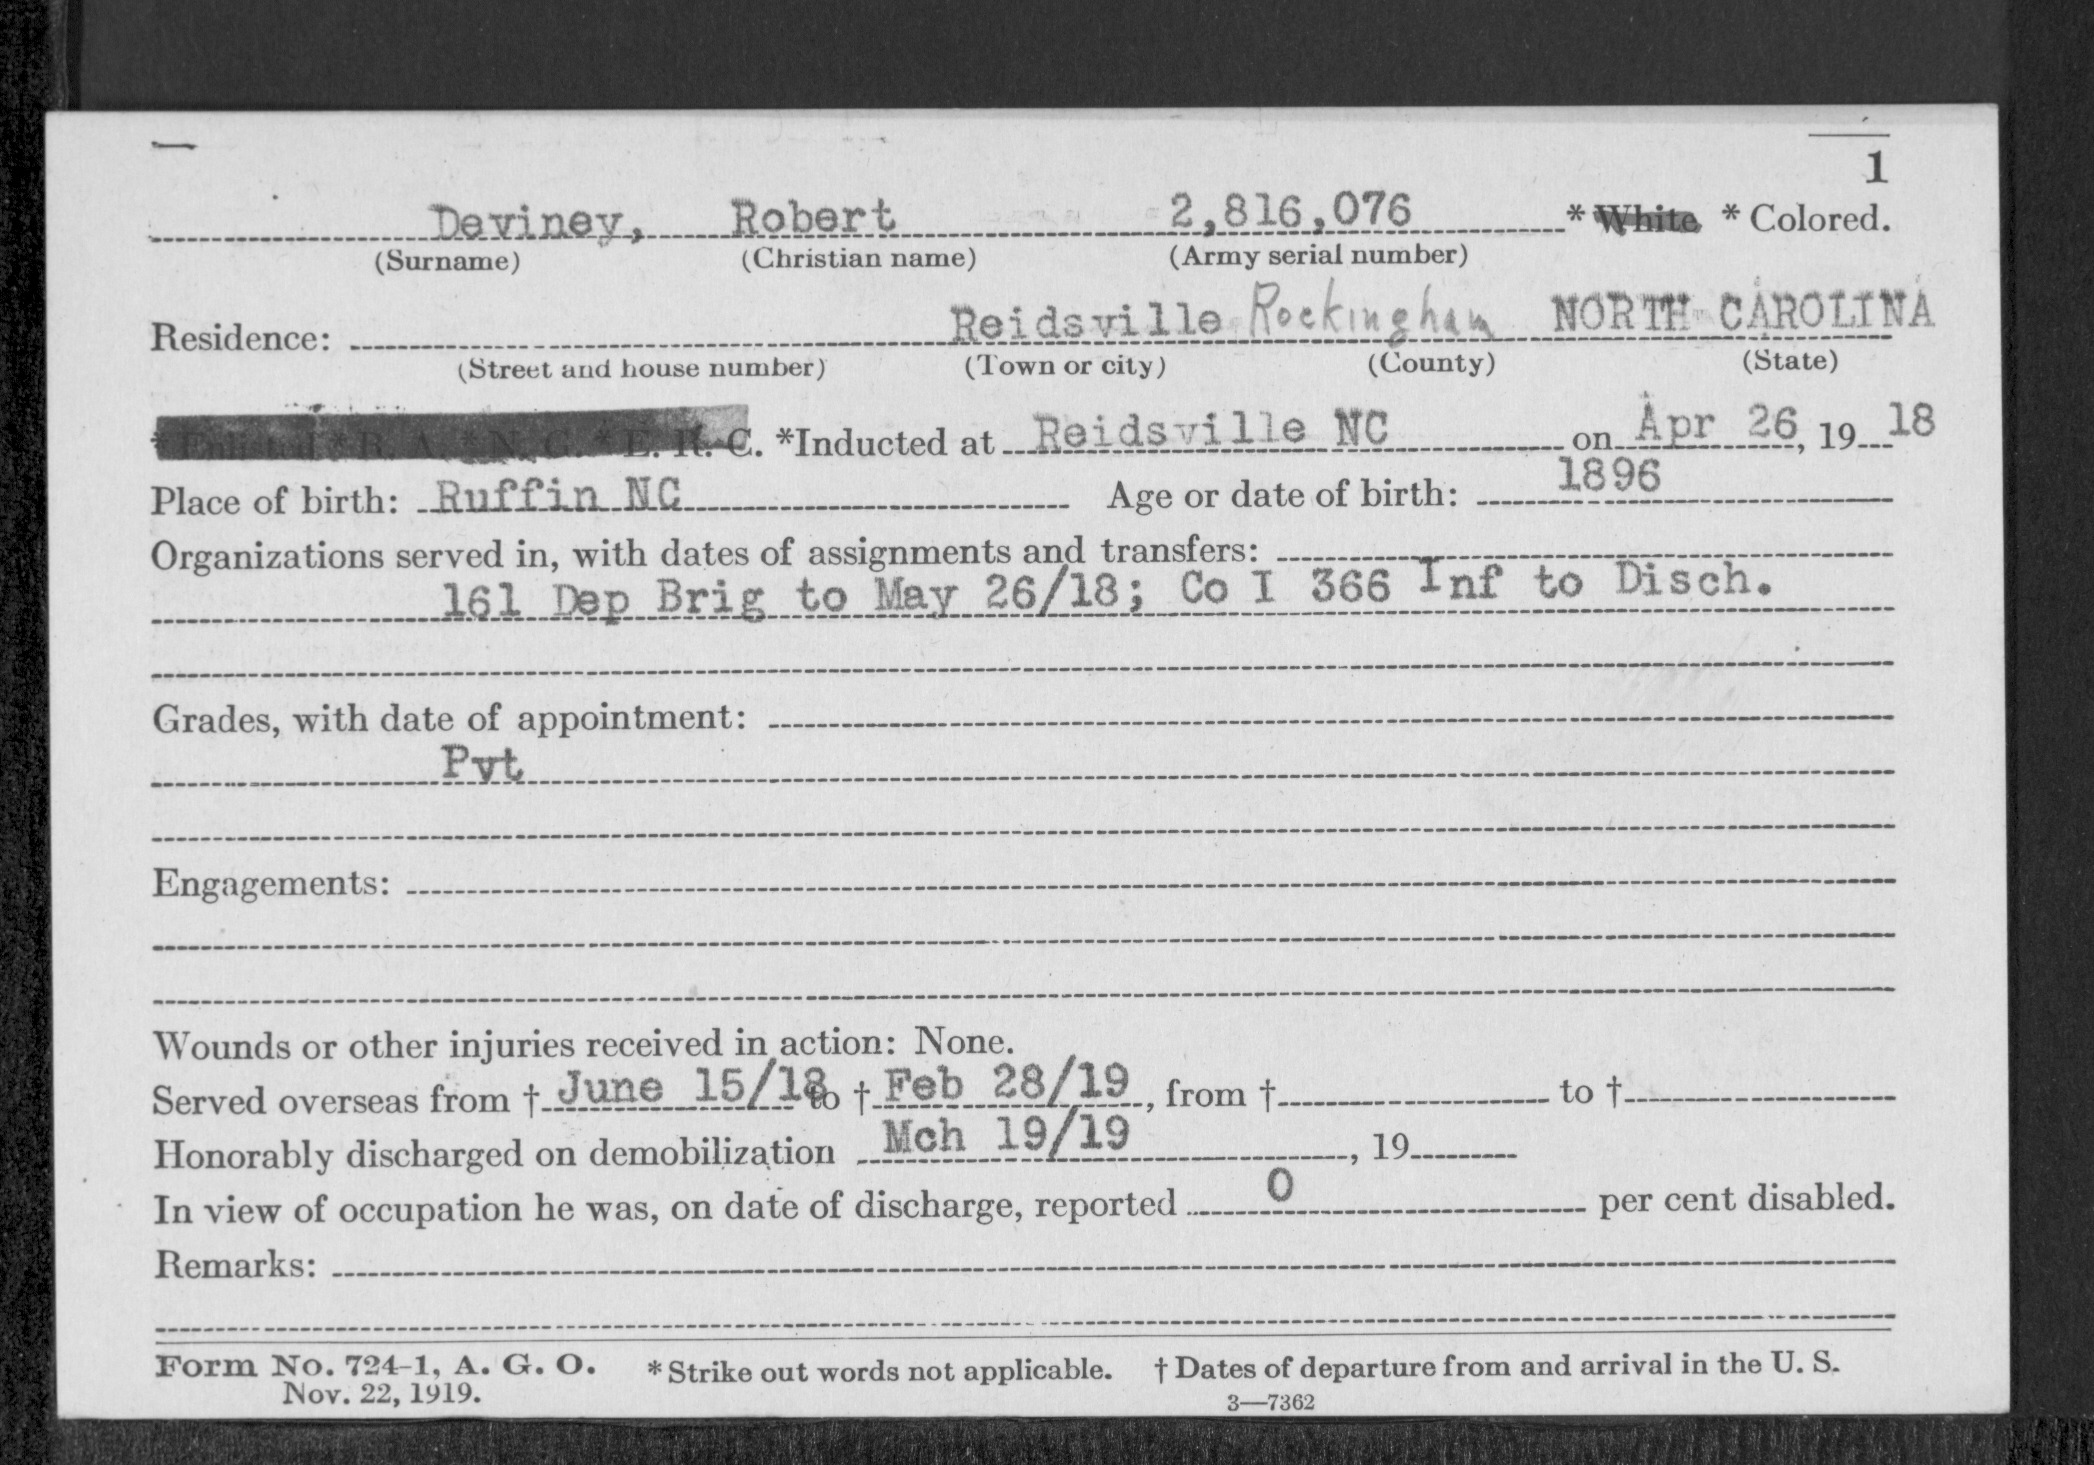 1
Deviney, Robert 2,816,076 * White * Colored.
(Surname) (Christian name) (Army serial number)
Residence: Reidsville Rockingham NORTH CAROLINA
(Street and house number) (Town or city) (County) (State)
* Enlisted * R. A. * N. G. * E. R. C. *Inducted at Reidsville NC on Apr 26, 19 18
Place of birth: Ruffin NC Age or date of birth: 1896
Organizations served in, with dates of assignments and transfers:
161 Dep Brig to May 26/18; Co I 366 Inf to Disch.
Grades, with date of appointment:
Pvt
Engagements:
Wounds or other injuries received in action: None.
Served overseas from † June 15/18 to † Feb 28/19, from † to †
Honorably discharged on demobilization Mch 19/19, 19
In view of occupation he was, on date of discharge, reported 0 per cent disabled.
Remarks:
Form No. 724-1, A. G. O. * Strike out words not applicable. † Dates of departure from and arrival in the U. S.
Nov. 22, 1919. 3—7362